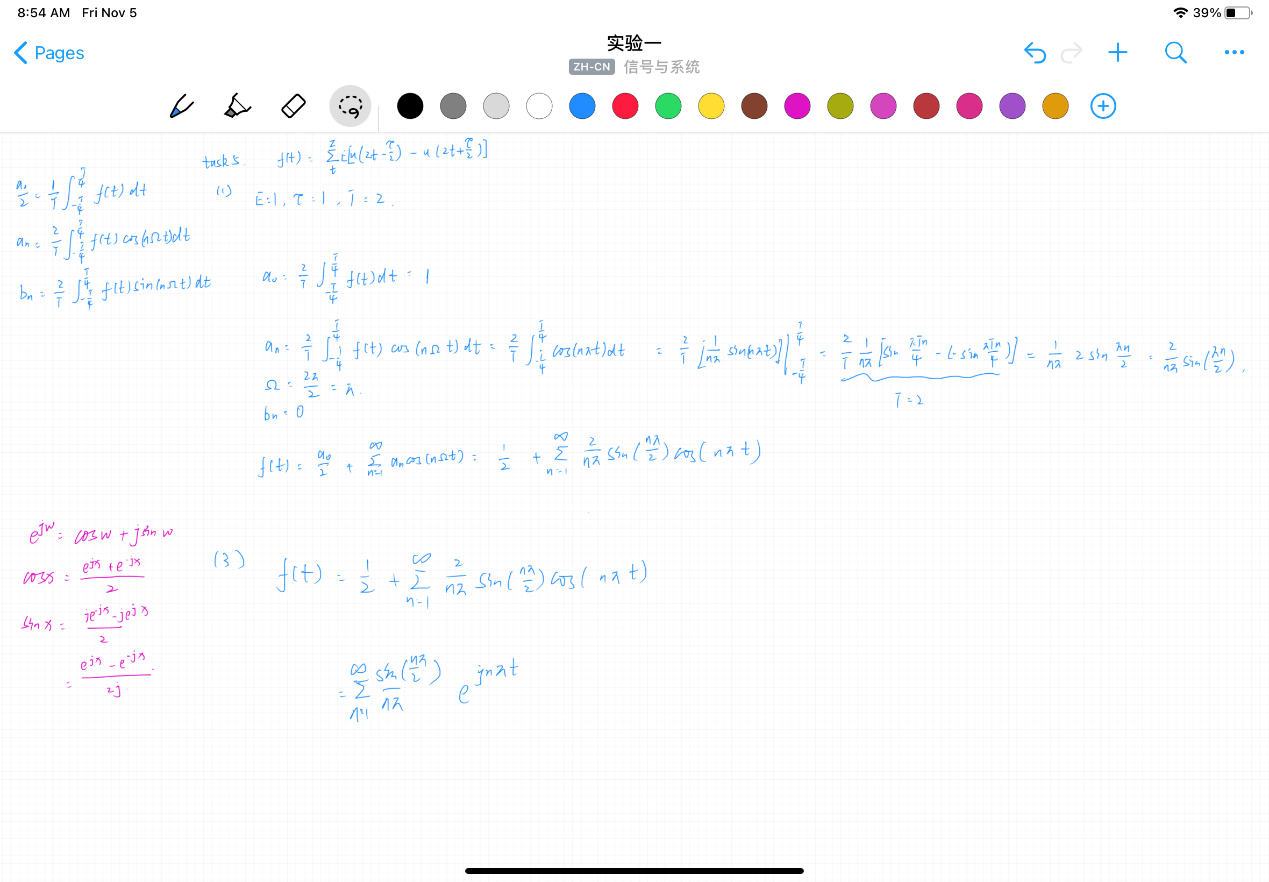 8:54 AM Fri Nov 5
39%
Pages
实验一
ZH-CN 信号与系统
task 5. f(t) =
(1) E=1, τ=1, T=2.
a₀/2 = 1/T ∫_{-T/4}^{T/4} f(t) dt
aₙ = 2/T ∫_{-T/4}^{T/4} f(t) cos(nΩt)dt
bₙ = 2/T ∫_{-T/4}^{T/4} f(t) sin(nΩt) dt
a₀ = 2/T ∫_{-T/4}^{T/4} f(t)dt = 1
aₙ = 2/T ∫_{-T/4}^{T/4} f(t) cos(nΩt) dt = 2/T ∫_{-T/4}^{T/4} cos(nπt)dt = 2/T [1/nπ sin(nπt)]|_{-T/4}^{T/4} = 2/T 1/nπ [sin πTn/4 - (-sin πTn/4)] = 1/nπ 2 sin πn/2 = 2/nπ sin(πn/2),
T=2
Ω = 2π/2 = π.
bₙ = 0
f(t) = a₀/2 + ∑_{n=1}^{∞} aₙ cos(nΩt) = 1/2 + ∑_{n=1}^{∞} 2/nπ sin(nπ/2) cos(nπt)
e^{jw} = cosw + jsinw
cosx = (e^{jx} + e^{-jx})/2
sinx = (je^{-jx} - je^{jx})/2
= (e^{jx} - e^{-jx})/2j
(3) f(t) = 1/2 + ∑_{n=1}^{∞} 2/nπ sin(nπ/2) cos(nπt)
= ∑_{n=1}^{∞} sin(nπ/2)/nπ e^{jnπt}